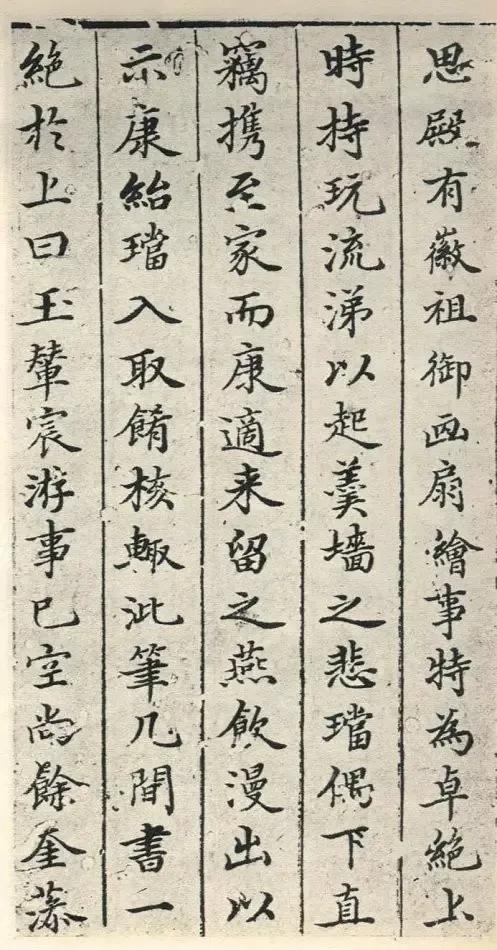 思殿有徽祖御画扇繪事特為卓絕上
時持玩流涕以起羹墻之悲璫偶下直
竊携至家而康適来留之燕飲漫出以
示康紿璫入取餚核輙泚筆几間書一
絕於上曰玉輦宸游事已空尚餘奎藻